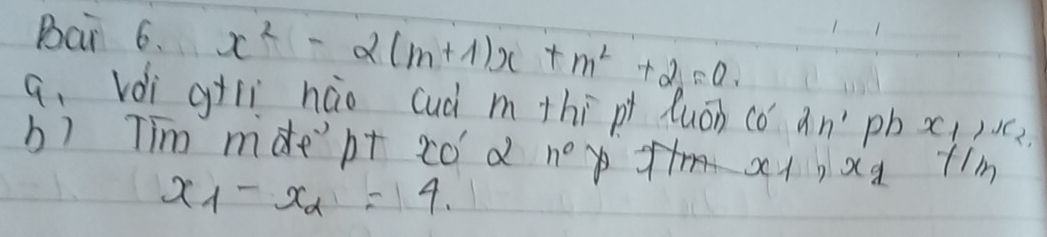 Bài 6. x² - 2(m+1)x + m² + 2 = 0.
a, Với gtrị nào của m thì pt luôn có 2 n⁰ pb x₁, x₂.
b) Tìm m để pt có 2 n⁰ x₁, x₂ t/m
x₁ - x₂ = 4.